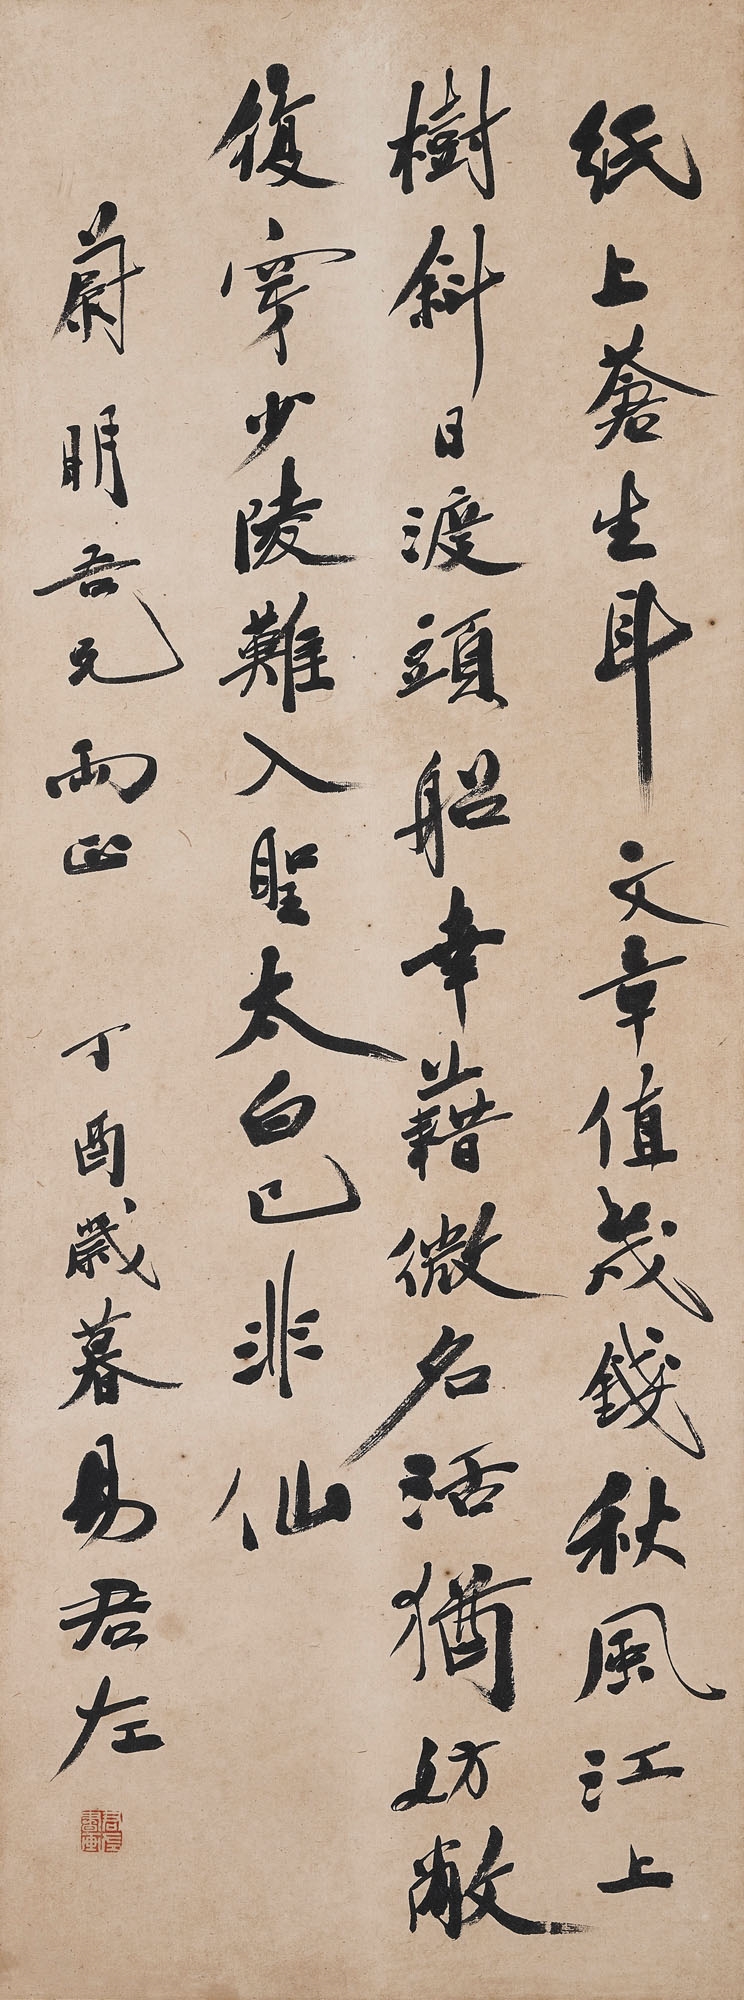 紙上蒼生耳文章值幾錢秋風江上
樹斜日渡頭船幸藉微名活猶妨敝
復穿少陵難入聖太白已非仙
蔚明吾兄兩正 丁酉歲暮易君左
君左書畫